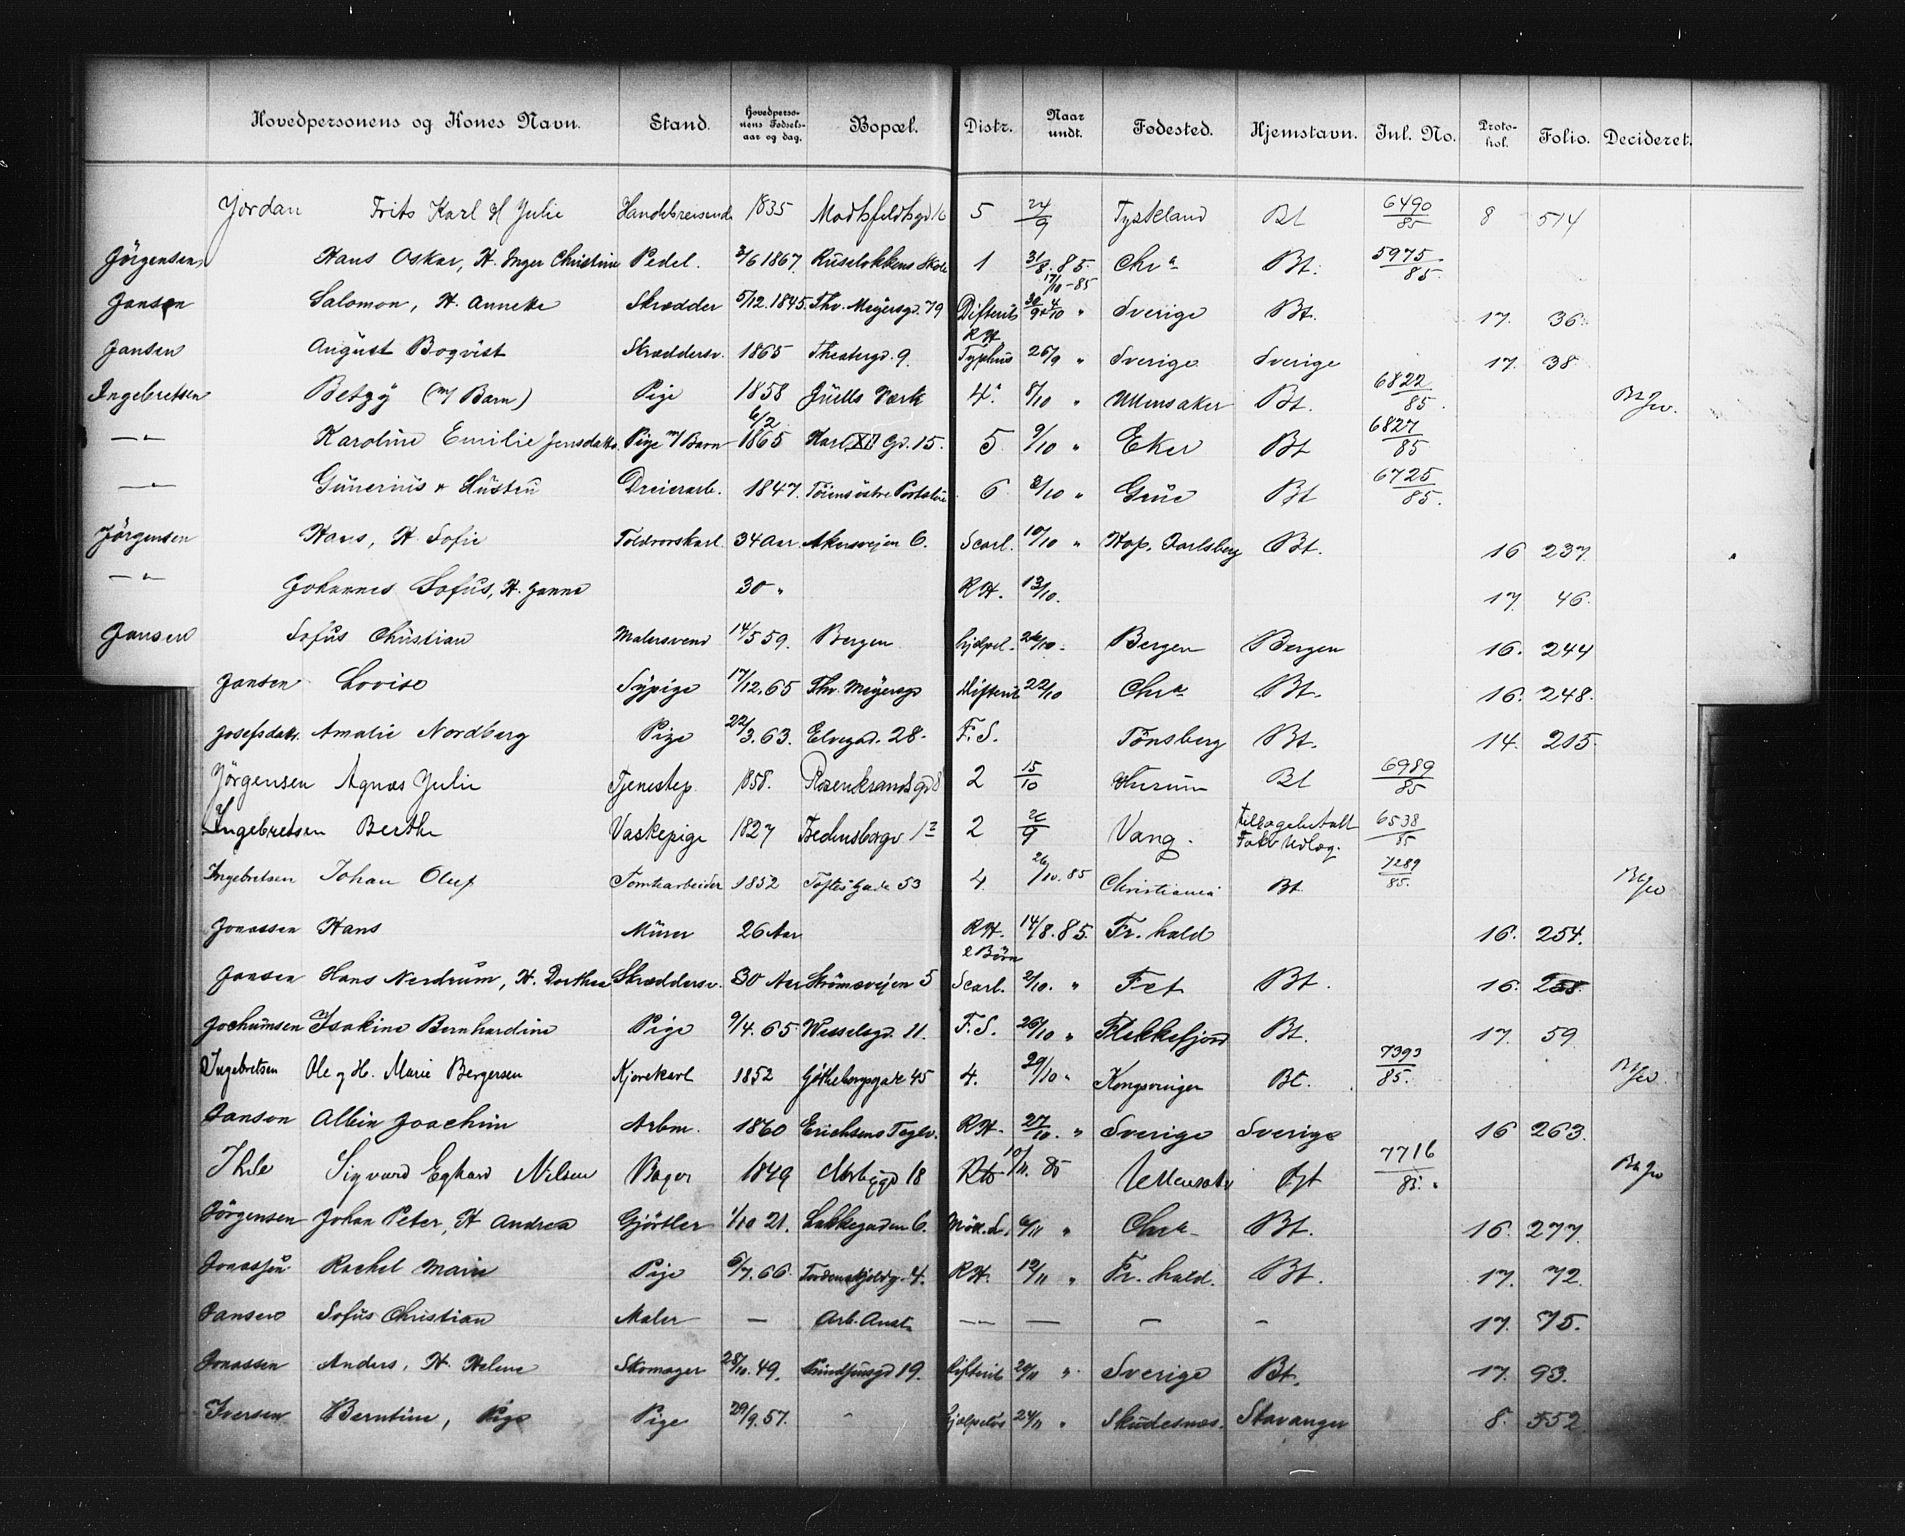 Hovedpersonens og Kones Navn. Stand. Hovedperso-nens Fødsels-aar og dag. Bopæl. Distr. Naar undt. Fødested. Hjemstavn. Inl. No. Proto-kol. Folio. Decideret.
Jordan Frits Karl H Julie Handelsreisende 1835 5 24/9 Tyskland Bt 6490/85 8 514
Jörgensen Hans Oskar, H. Inger Christine Pedel. 3/6 1867. Ruseløkkens Skole 1 31/8. 85. 17/10-85 Chra Bt. 5975/85.
Jansen Salomon, H. Anneke Skrædder 5/12. 1845. Thv. Meyersgd. 79 Difterit 30/9 4/10 " Sverige Bt. 17. 36.
Jansen August Boqvist Skræddersv. 1865 Theatergd. 9. R.H. Typhus 26/9 " Sverige Sverige 17. 38.
Ingebretsen Betzy (m/ Barn) Pige 1858 Juells Værk 4. 8/10 " Ullensaker Bt. 6822/85.
—"— Karoline Emilie Jensdatr. Pige m/ Barn 6/2 1865 Karl XII Gd. 15. 5 9/10 " Eker Bt 6827/85
—"— Gunerius & Hustru Dreierarb. 1847. 6 2/10 " Grue Bt 6725/85.
Jörgensen Hans, H. Sofie Toldvorskarl 34 Aar. Akersvejen 6. Scarl. 10/10 " Hop. Jarlsberg Bt. 16 237.
—"— Johannes Sofus, H. Janna 30 " R.H. 13/10. 17. 46.
Jansen Sofus Christian Malersvend 14/5 59. Bergen hjelpel. 26/10. Bergen Bergen 16. 244
Jansen Lovise Sypige 17/12. 65 Thv. Meyersgd Difterit 22/10 Chra Bt. 16. 248.
Josefsdatr. Amalie Nordberg Pige 22/3. 63. Elvegad. 28. F. S. Tönsberg Bt. 14. 215.
Jörgensen Agnes Julie Tjenestep. 1858. Rosenkrandsgd 8 2 15/10 Hurum Bt 6989/85
Ingebretsen Berthe Vaskepige 1827 2 20/9 Vang. 6538/85
Ingebretsen Johan Oluf Tomtearbeider 1852 Toftes Gade 53 4. 26/10. 85 Christiania Bt. 7289/85.
Jonassen Hans Murer 26 Aar R.H. 14/8. 85. Fr. hald 16. 254.
Jansen Hans Nerdrum, H. Dorthea Skræddersv. 30 Aar Strömsvejen 5 2 Börn Scarl. 2/10. " Fet Bt. 16. 258.
Jochumsen Isakine Bernhardine Pige 9/4. 65 Wesselsgd. 11. F. S. 26/10 " Flekkefjord Bt. 17. 59
Ingebretsen Ole og H. Marie Bergersen Kjörekarl 1852 Götheborgsgade 45 4. 29/10 " Kongsvinger Bt. 7393/85.
Janson Albin Joachim Arbm. 1860 Erichsens Teglv. R.H. 27/10. " Sverige Sverige 16 263.
Ihle Sigvard Eghard Nilsen Bager 1849 18 R.H. 10/11. 85 Ullensaker Bt 7716/85.
Jörgensen Johan Peter, H Andrea Gjörtler 1/10 21. Lakkegaden 6. Möll. S. 6/11 " Chra Bt. 16. 277.
Jonassen Rachel Marie Pige 6/7. 66. Tordenskjoldsg. 4. R.H. 12/11 " Fr. hald. Bt. 17. 72.
Jansen Sofus Christian Maler — Arb. Anst. —"— — — — 17. 75.
Jonassen Anders, H. Helene Skomager 28/10. 49. 19. Difterit 20/11 " Sverige Bt. 17. 93.
Iversen Berntine, Pige Pige 29/9. 57. " hjælpelös 24/11 " Skudesnæs. Stavanger 8. 552.